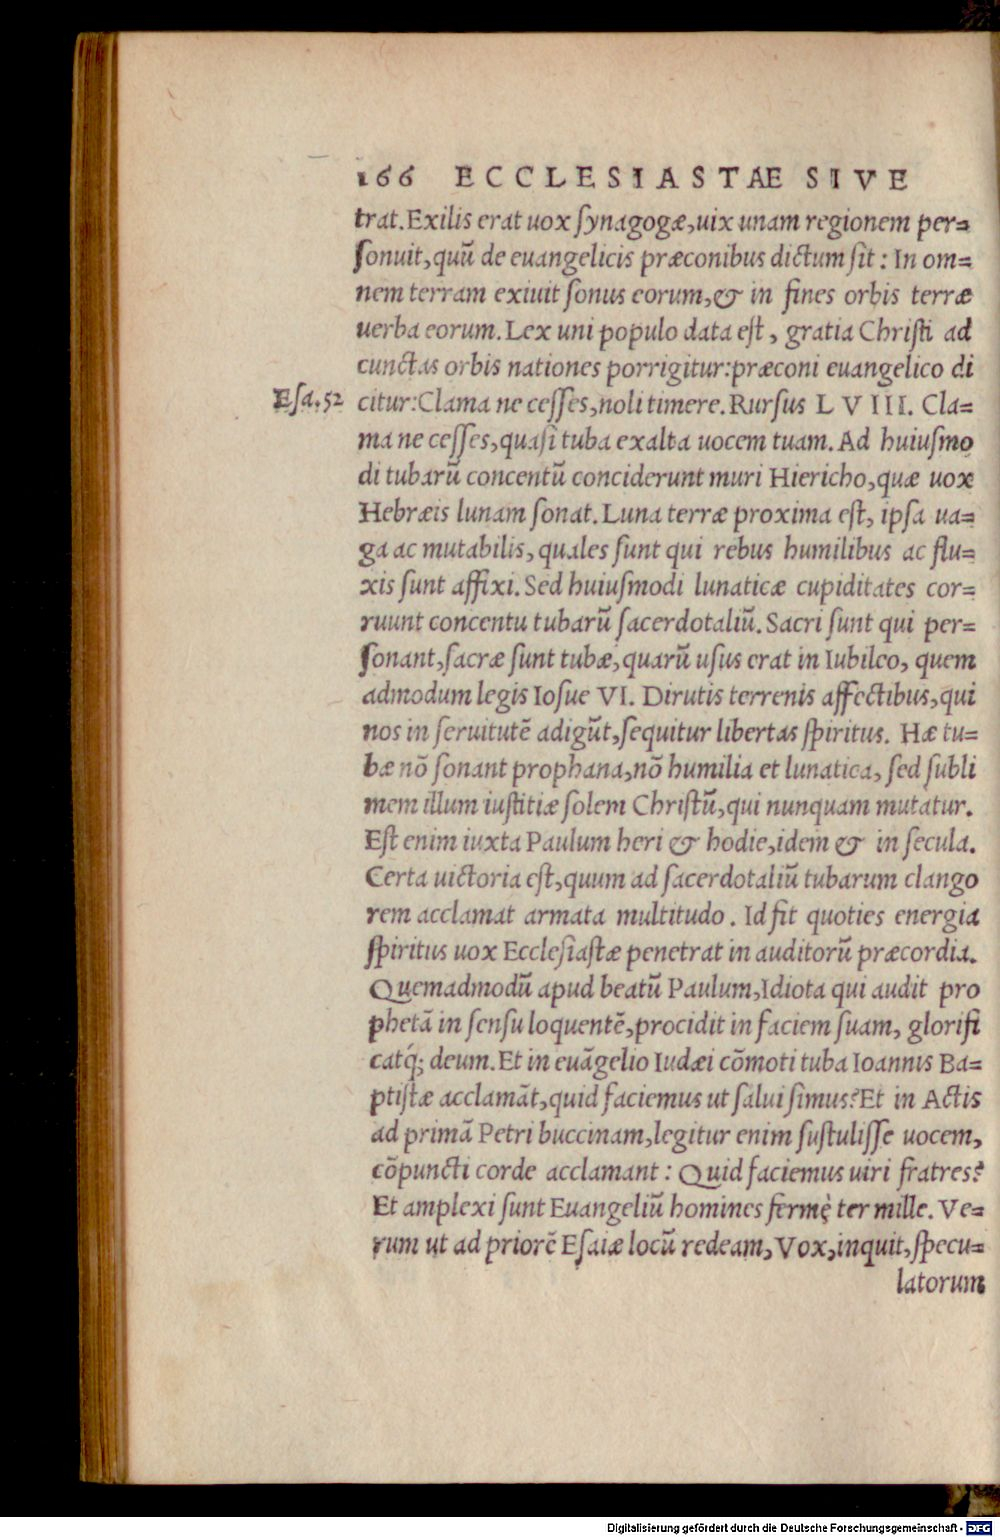 166 ECCLESIASTAE SIVE
trat. Exilis erat uox ſynagogæ, uix unam regionem per=
ſonuit, quū de euangelicis præconibus dictum ſit: In om=
nem terram exiuit ſonus eorum, & in fines orbis terræ
uerba eorum. Lex uni populo data eſt, gratia Chriſti ad
cunctas orbis nationes porrigitur: præconi euangelico di
Eſa. 52 citur: Clama ne ceſſes, noli timere. Rurſus LVIII. Cla=
ma ne ceſſes, quaſi tuba exalta uocem tuam. Ad huiuſmo
di tubarū concentū conciderunt muri Hiericho, quæ uox
Hebræis lunam ſonat. Luna terræ proxima eſt, ipſa ua=
ga ac mutabilis, quales ſunt qui rebus humilibus ac flu=
xis ſunt affixi. Sed huiuſmodi lunaticæ cupiditates cor=
ruunt concentu tubarū ſacerdotaliū. Sacri ſunt qui per=
ſonant, ſacræ ſunt tubæ, quarū uſus erat in Iubileo, quem
admodum legis Ioſue VI. Dirutis terrenis affectibus, qui
nos in ſeruitutē adigūt, ſequitur libertas ſpiritus. Hæ tu=
bæ nō ſonant prophana, nō humilia et lunatica, ſed ſubli
mem illum iuſtitiæ ſolem Chriſtū, qui nunquam mutatur.
Eſt enim iuxta Paulum heri & hodie, idem & in ſecula.
Certa uictoria eſt, quum ad ſacerdotaliū tubarum clango
rem acclamat armata multitudo. Id fit quoties energia
ſpiritus uox Eccleſiaſtæ penetrat in auditorū præcordia.
Quemadmodū apud beatū Paulum, Idiota qui audit pro
phetā in ſenſu loquentē, procidit in faciem ſuam, glorifi
catq́; deum. Et in euāgelio Iudæi cōmoti tuba Ioannis Ba=
ptiſtæ acclamāt, quid faciemus ut ſalui ſimus? Et in Actis
ad primā Petri buccinam, legitur enim ſuſtuliſſe uocem,
cōpuncti corde acclamant: Quid faciemus uiri fratres?
Et amplexi ſunt Euangeliū homines fermę̀ ter mille. Ve=
rum ut ad priorē Eſaiæ locū redeam, Vox, inquit, ſpecu=
latorum
Digitalisierung gefördert durch die Deutsche Forschungsgemeinschaft - DFG